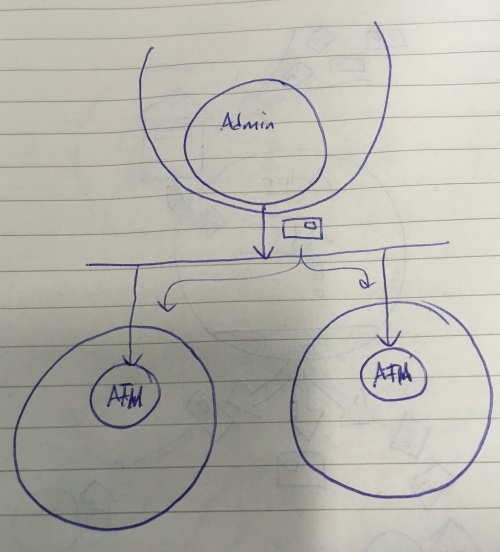 Admin
ATM
ATM